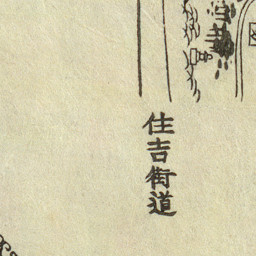 住吉街道